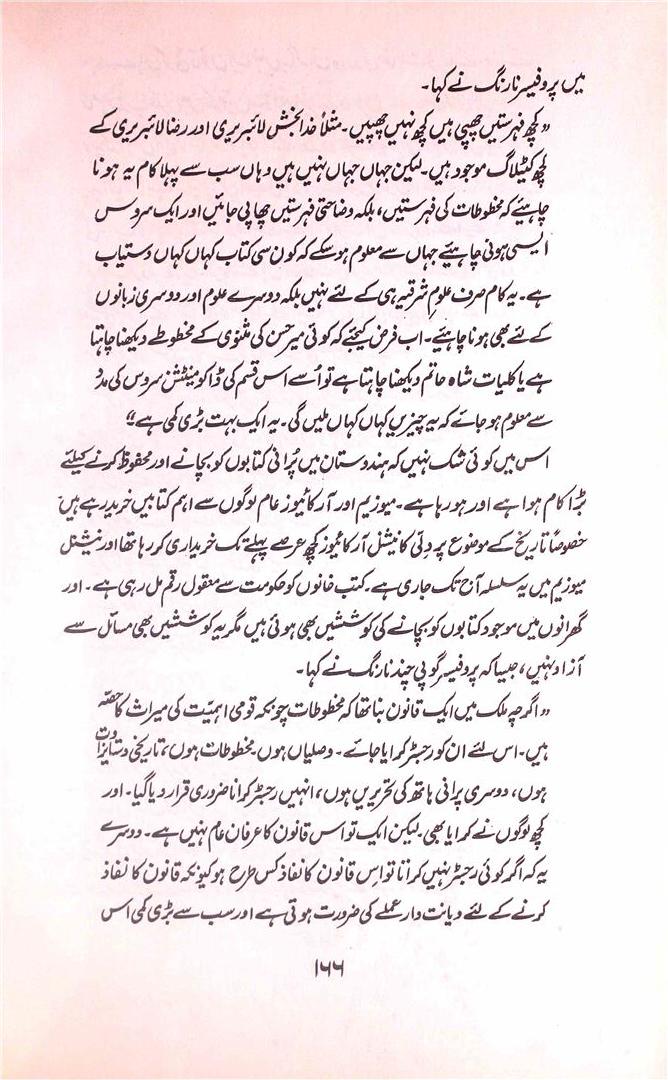 میں پروفیسر نارنگ نے کہا۔
”کچھ فہرستیں چھپی ہیں کچھ نہیں چھپیں۔ مثلاً خدا بخش لائبریری اور رضا لائبریری کے
کچھ کٹیلاگ موجود ہیں۔ لیکن جہاں جہاں نہیں ہیں وہاں سب سے پہلا کام یہ ہونا
چاہیئے کہ مخطوطات کی فہرستیں، بلکہ وضاحتی فہرستیں چھاپی جائیں اور ایک سروس
ایسی ہونی چاہیئے جہاں سے معلوم ہو سکے کہ کون سی کتاب کہاں کہاں دستیاب
ہے۔ یہ کام صرف علومِ شرقیہ ہی کے لئے نہیں بلکہ دوسرے علوم اور دوسری زبانوں
کے لئے بھی ہونا چاہیئے۔ اب فرض کیجئے کہ کوئی میر حسن کی مثنوی کے مخطوطے دیکھنا چاہتا
ہے یا کلیات شاہ حاتم دیکھنا چاہتا ہے تو اُسے اس قسم کی ڈاکومنٹیشن سروس کی مدد
سے معلوم ہو جائے کہ یہ چیزیں کہاں کہاں ملیں گی۔ یہ ایک بہت بڑی کمی ہے“
اس میں کوئی شک نہیں کہ ہندوستان میں پُرانی کتابوں کو بچانے اور محفوظ کرنے کیلئے
بڑا کام ہوا ہے اور ہو رہا ہے۔ میوزیم اور آرکائیوز عام لوگوں سے اہم کتابیں خرید رہے ہیں
خصوصاً تاریخ کے موضوع پر دِلّی کا نیشنل آرکائیوز کچھ عرصے پہلے تک خریداری کر رہا تھا اور نیشنل
میوزیم میں یہ سلسلہ آج تک جاری ہے۔ کتب خانوں کو حکومت سے معقول رقم مل رہی ہے۔ اور
گھرانوں میں موجود کتابوں کو بچانے کی کوششیں بھی ہوئی ہیں مگر یہ کوششیں بھی مسائل سے
آزاد نہیں، جیسا کہ پروفیسر گوپی چند نارنگ نے کہا۔
”اگرچہ ملک میں ایک قانون بنا تھا کہ مخطوطات چونکہ قومی اہمیّت کی میراث کا حصّہ
ہیں۔ اس لئے ان کو رجسٹر کرایا جائے۔ وصلیاں ہوں۔ مخطوطات ہوں، تاریخی دستاویزات
ہوں، دوسری پرانی ہاتھ کی تحریریں ہوں، انہیں رجسٹر کرانا ضروری قرار دیا گیا۔ اور
کچھ لوگوں نے کرایا بھی۔ لیکن ایک تو اس قانون کا عرفان عام نہیں ہے۔ دوسرے
یہ کہ اگر کوئی رجسٹر نہیں کراتا تو اِس قانون کا نفاذ کس طرح ہو کیونکہ قانون کا نفاذ
کرنے کے لئے دیانت دار عملے کی ضرورت ہوتی ہے اور سب سے بڑی کمی اس
۱۶۶